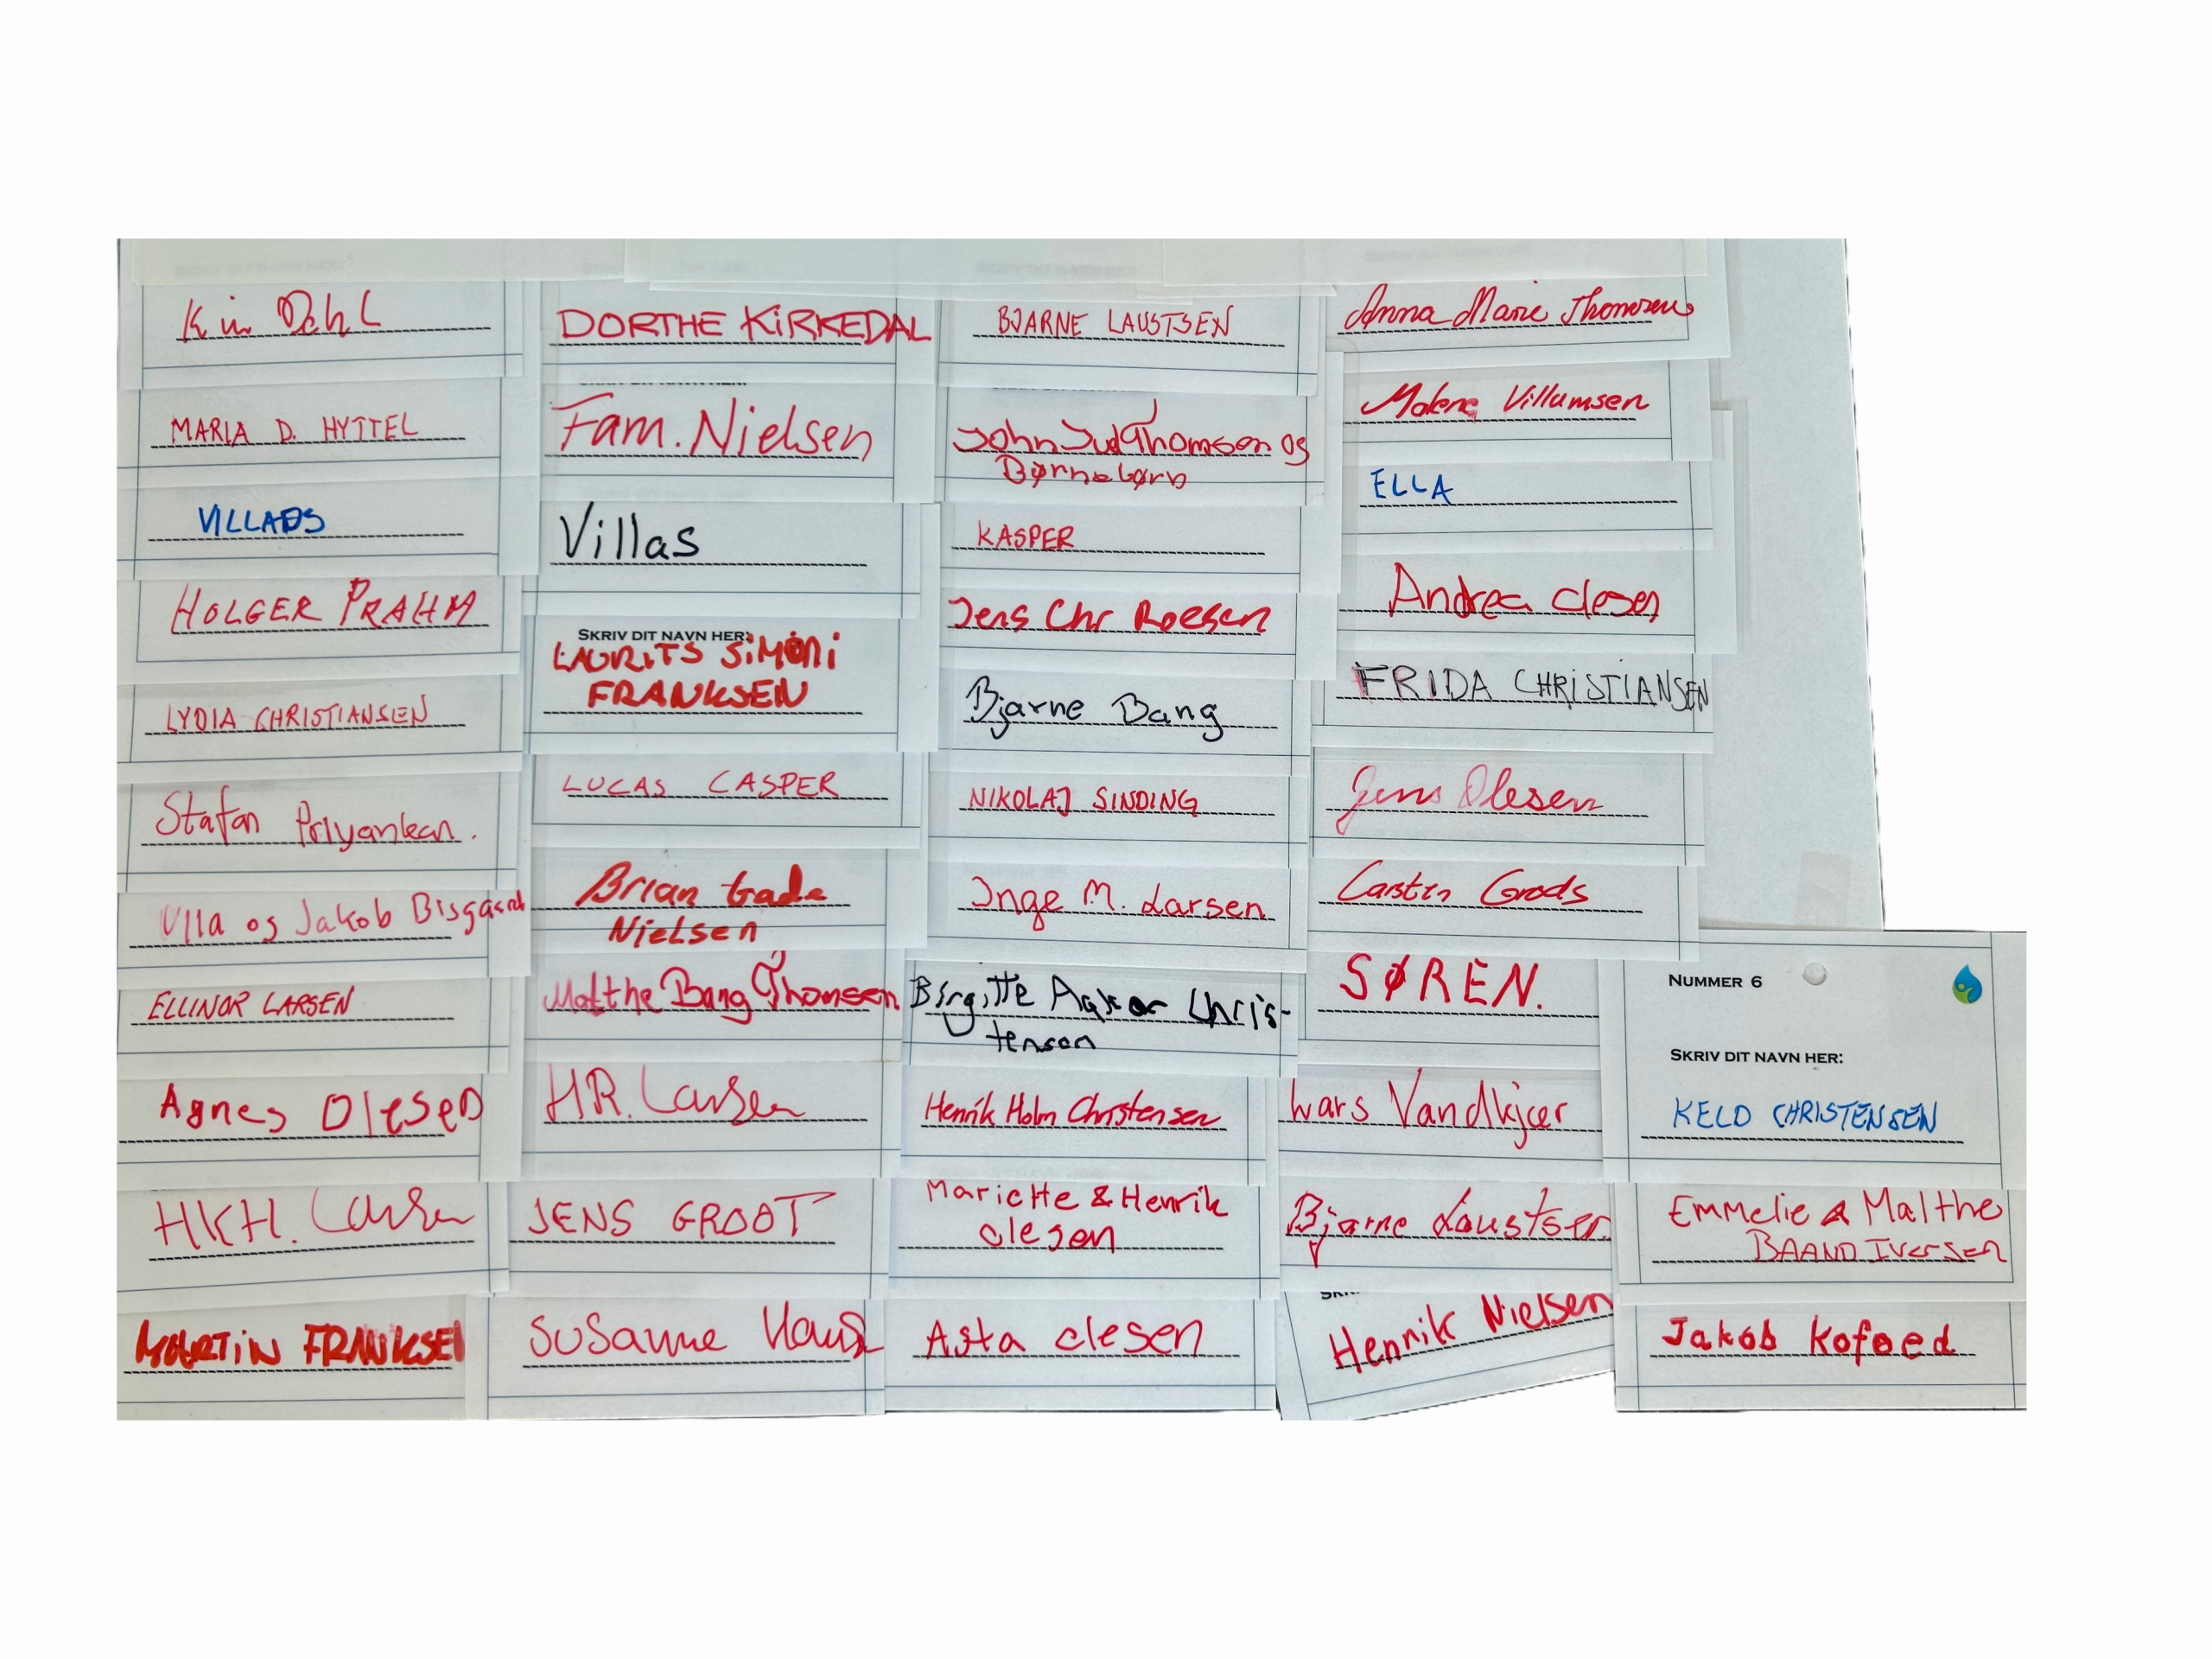 Kim Dahl
MARIA D. HYTTEL
VILLADS
HOLGER PRAHM
LYDIA CHRISTIANSEN
Stafan Priyankan.
Ulla og Jakob Bisgaard
ELLINOR LARSEN
Agnes Olesen
HKH. Larsen
MARTIN FRANKSEN
DORTHE KIRKEDAL
Fam. Nielsen
Villas
SKRIV DIT NAVN HER:
LAURITS SIMONI
FRANKSEN
LUCAS CASPER
Brian Gade
Nielsen
Malthe Bang Thomsen
HR. Larsen
JENS GROOT
Susanne
BJARNE LAUSTSEN
John Juul Thomsen og
Børnebørn
KASPER
Jens Chr Roesen
Bjarne Bang
NIKOLAJ SINDING
Inge M. Larsen
Birgitte Agker Chris-
tensen
Henrik Holm Christensen
Mariette & Henrik
Olesen
Asta Olesen
Anna Marie Thomsen
Malene Villumsen
ELLA
Andrea Olesen
FRIDA CHRISTIANSEN
Jens Olesen
Carsten Grods
SØREN.
Lars Vandkjær
Bjarne Laustsen
Henrik Nielsen
NUMMER 6
SKRIV DIT NAVN HER:
KELD CHRISTENSEN
Emmelie & Malthe
BAAND IVERSEN
Jakob Kofoed